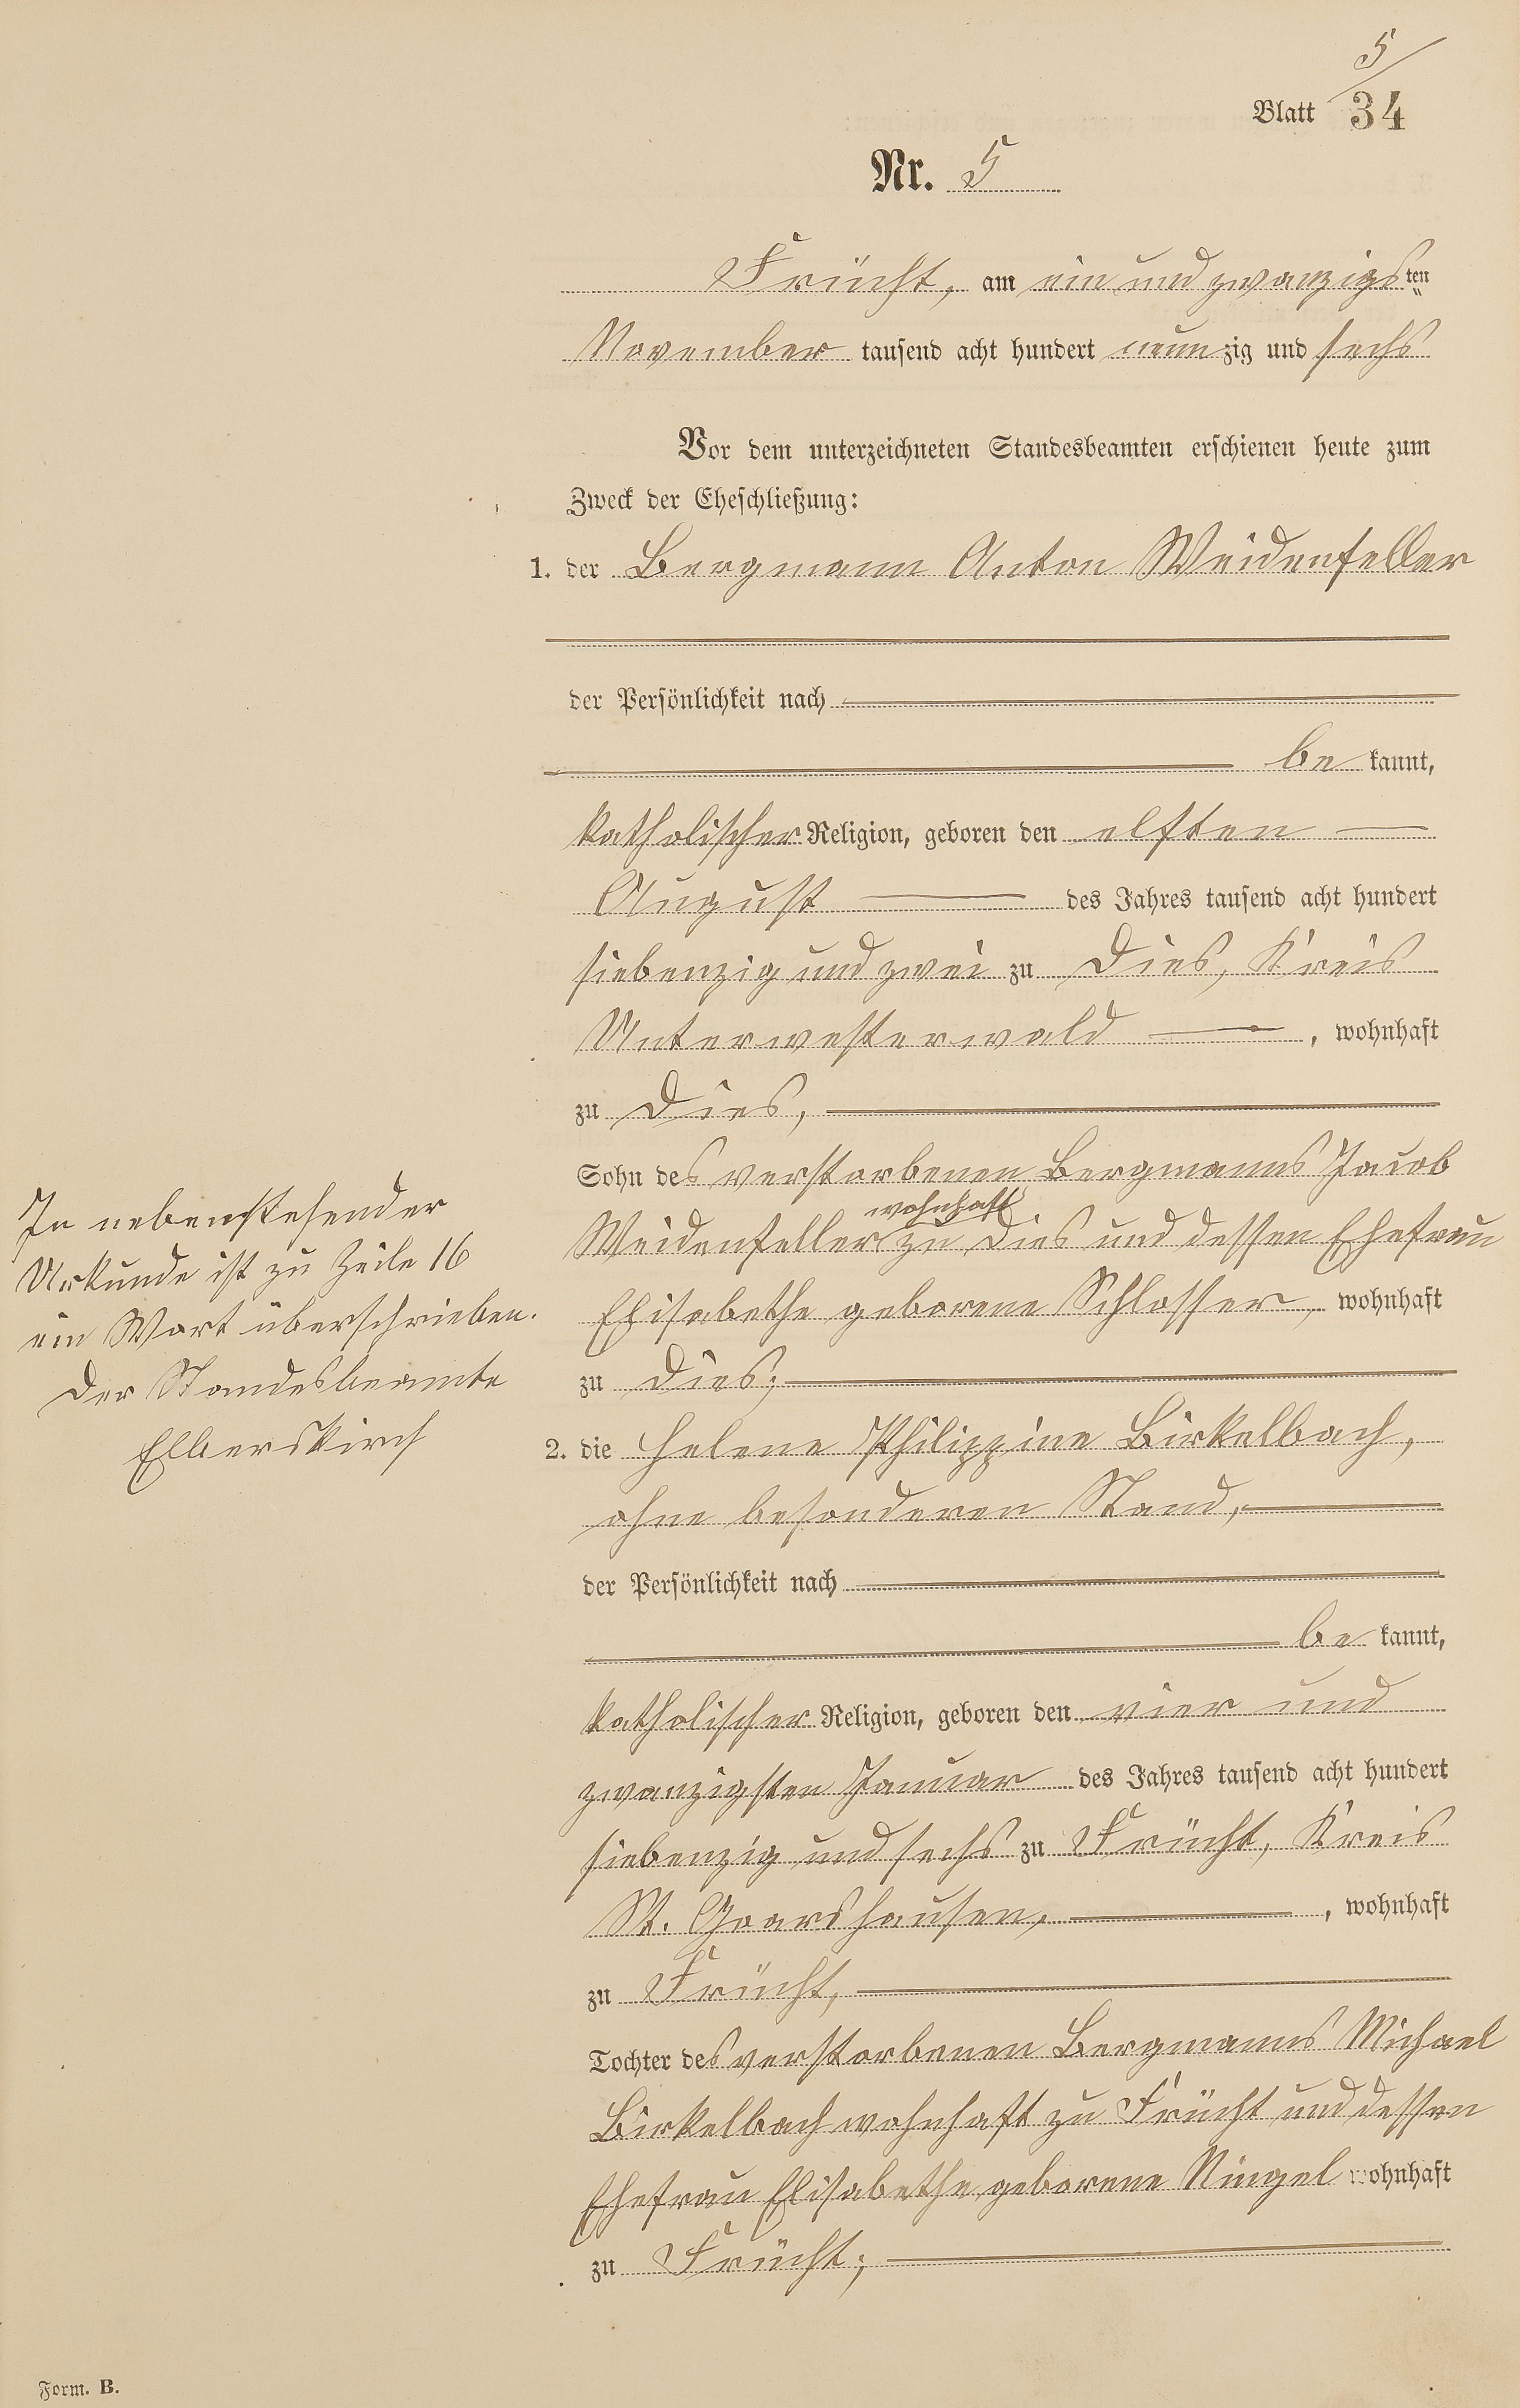 5
Blatt 34
Nr. 5
Frücht, am ein und zwanzigsten
November tausend acht hundert neunzig und sechs
Vor dem unterzeichneten Standesbeamten erschienen heute zum
Zweck der Eheschließung:
1. der Bergmann Anton Weidenfeller
der Persönlichkeit nach
be kannt,
katholischer Religion, geboren den elften
August des Jahres tausend acht hundert
siebenzig und zwei zu Dies, Kreis
Unterwesterwald, wohnhaft
zu Dies,
Sohn des verstorbenen Bergmanns Jacob
wohnhaft
Weidenfeller zu Dies und dessen Ehefrau
Elisabethe geborene Schlosser, wohnhaft
zu Dies;
In nebenstehender
Urkunde ist zu Zeile 16
ein Wort überschrieben.
Der Standesbeamte
Elberskirch
2. die Helene Philippine Birkelbach,
ohne besonderen Stand,
der Persönlichkeit nach
be kannt,
katholischer Religion, geboren den vier und
zwanzigsten Januar des Jahres tausend acht hundert
siebenzig und sechs zu Frücht, Kreis
St. Goarshausen, , wohnhaft
zu Frücht,
Tochter des verstorbenen Bergmanns Michael
Birkelbach wohnhaft zu Frücht und dessen
Ehefrau Elisabethe, geborene Ningel wohnhaft
zu Frücht;
Form. B.